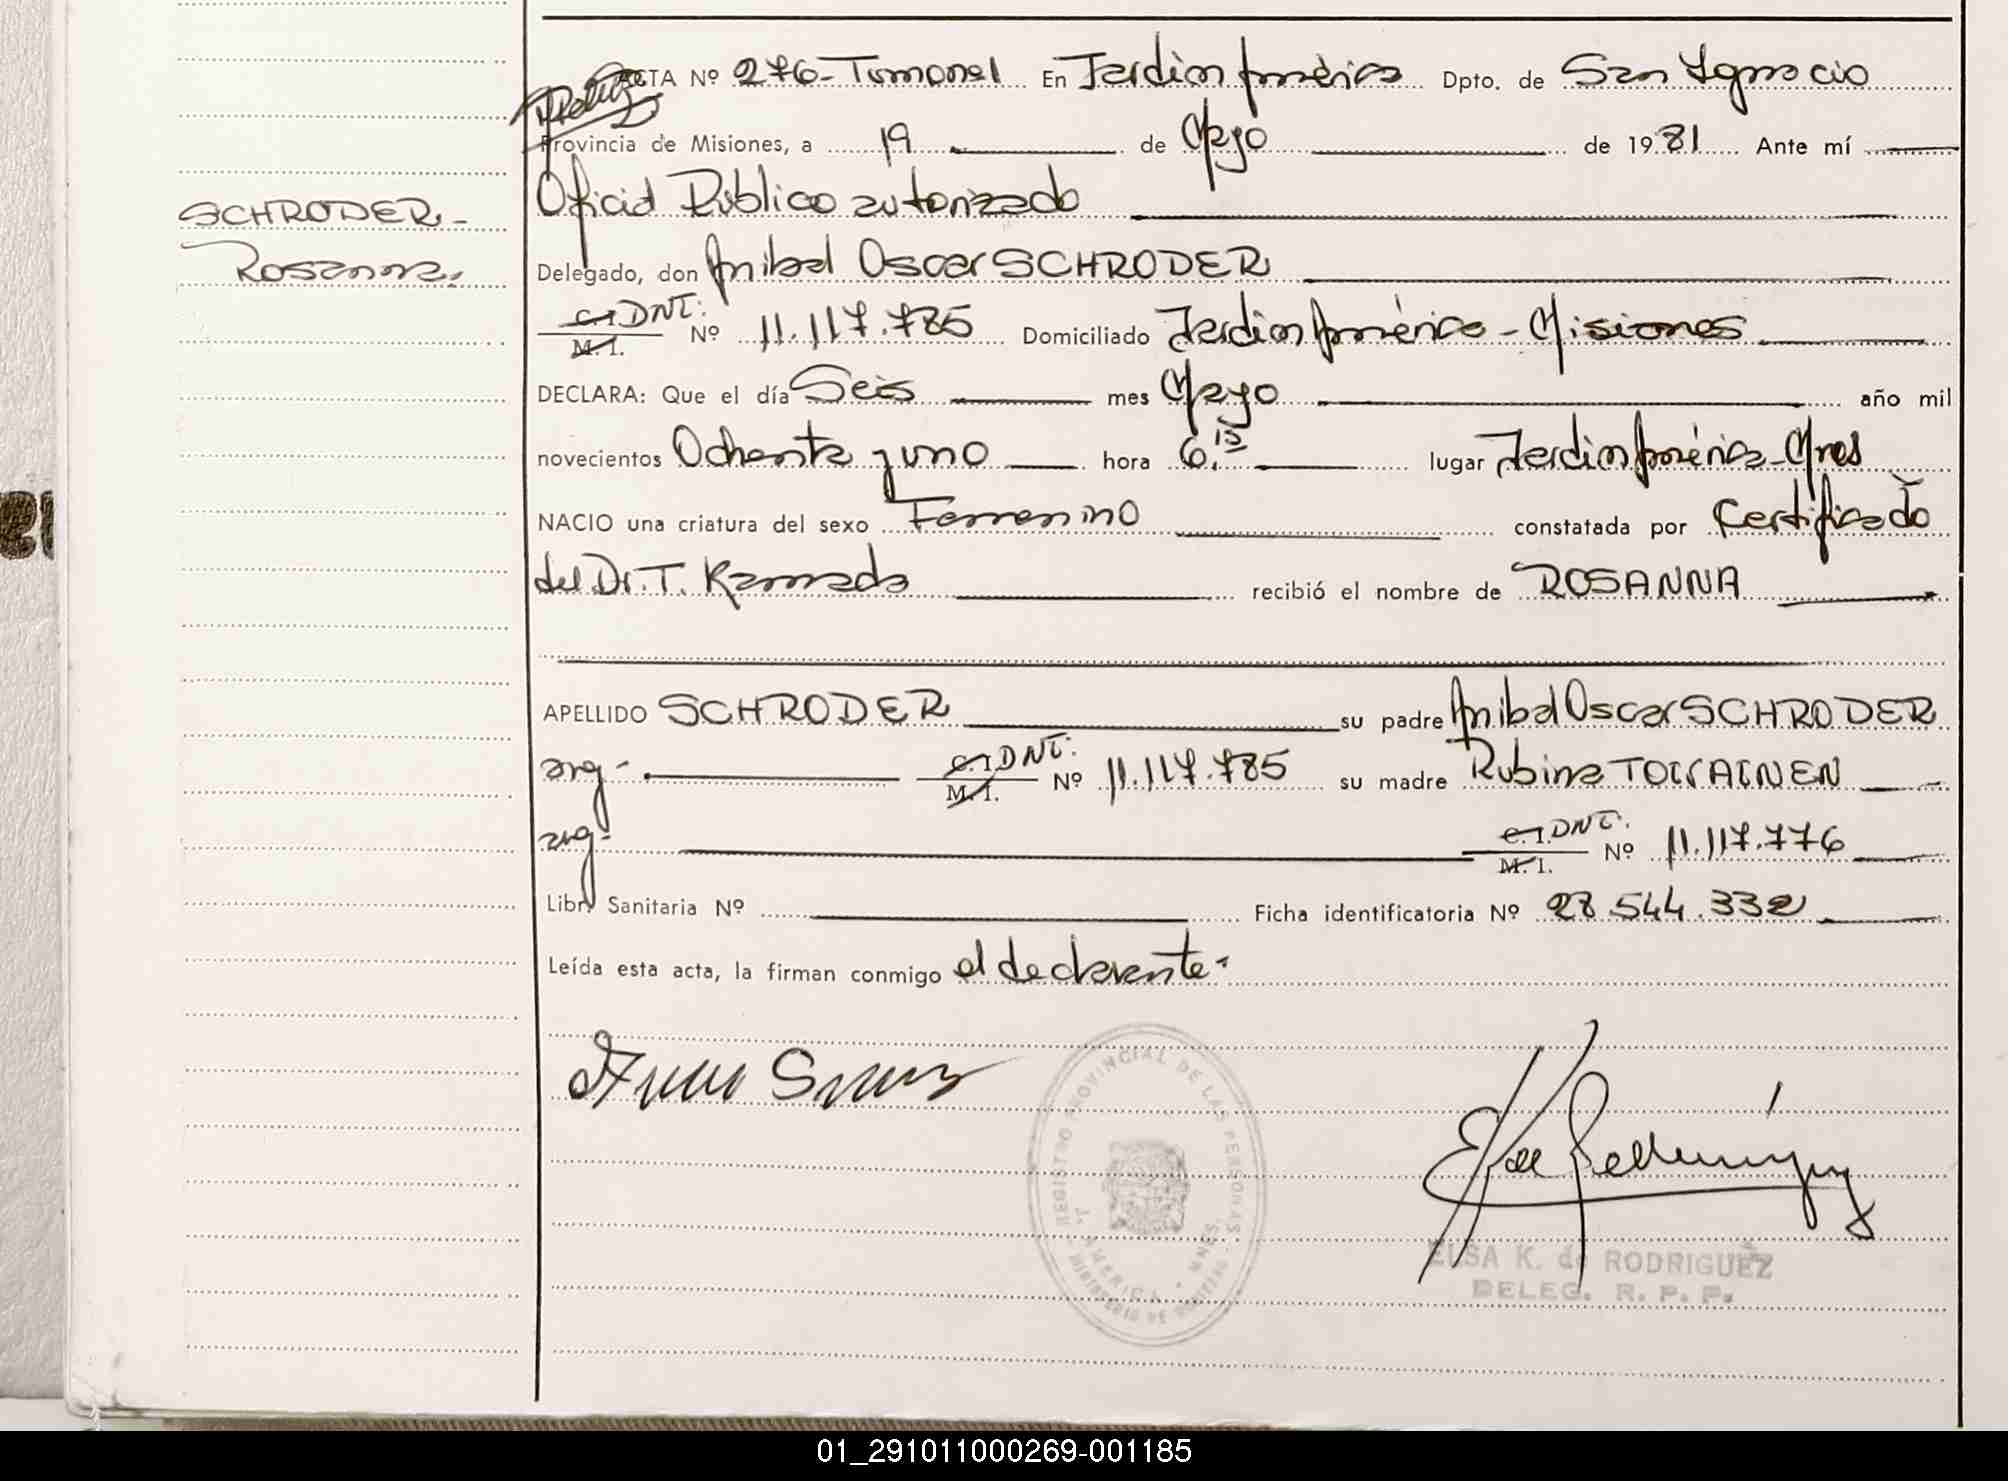 ACTA Nº 276-Tomo nº1 En Jardin América Dpto. de San Ignacio
Provincia de Misiones, a 19 de Mayo de 1981 Ante mí
Oficial Público autorizado
SCHRODER-
Rosanna.
Delegado, don Anibal Oscar SCHRODER
C.I DNI: M.I. Nº 11.117.785 Domiciliado Jardin América - Misiones
DECLARA: Que el día Seis mes Mayo año mil
novecientos Ochenta y uno hora 6,15 lugar Jardin América-Mnes
NACIO una criatura del sexo Femenino constatada por Certificado
del Dr. T. Kamada recibió el nombre de ROSANNA
APELLIDO SCHRODER su padre Anibal Oscar SCHRODER
arg- C.I DNI: M.I. Nº 11.117.785 su madre Rubina TOIVAINEN
arg- C.I. DNI. M.I. Nº 11.117.776
Libr. Sanitaria Nº Ficha identificatoria Nº 28.544.332
Leída esta acta, la firman conmigo el declarante-
REGISTRO PROVINCIAL DE LAS PERSONAS
J. AMERICA - MNES.
MINISTERIO DE GOBIERNO
ELSA K. de RODRIGUEZ
DELEG. R. P. P.
01_291011000269-001185